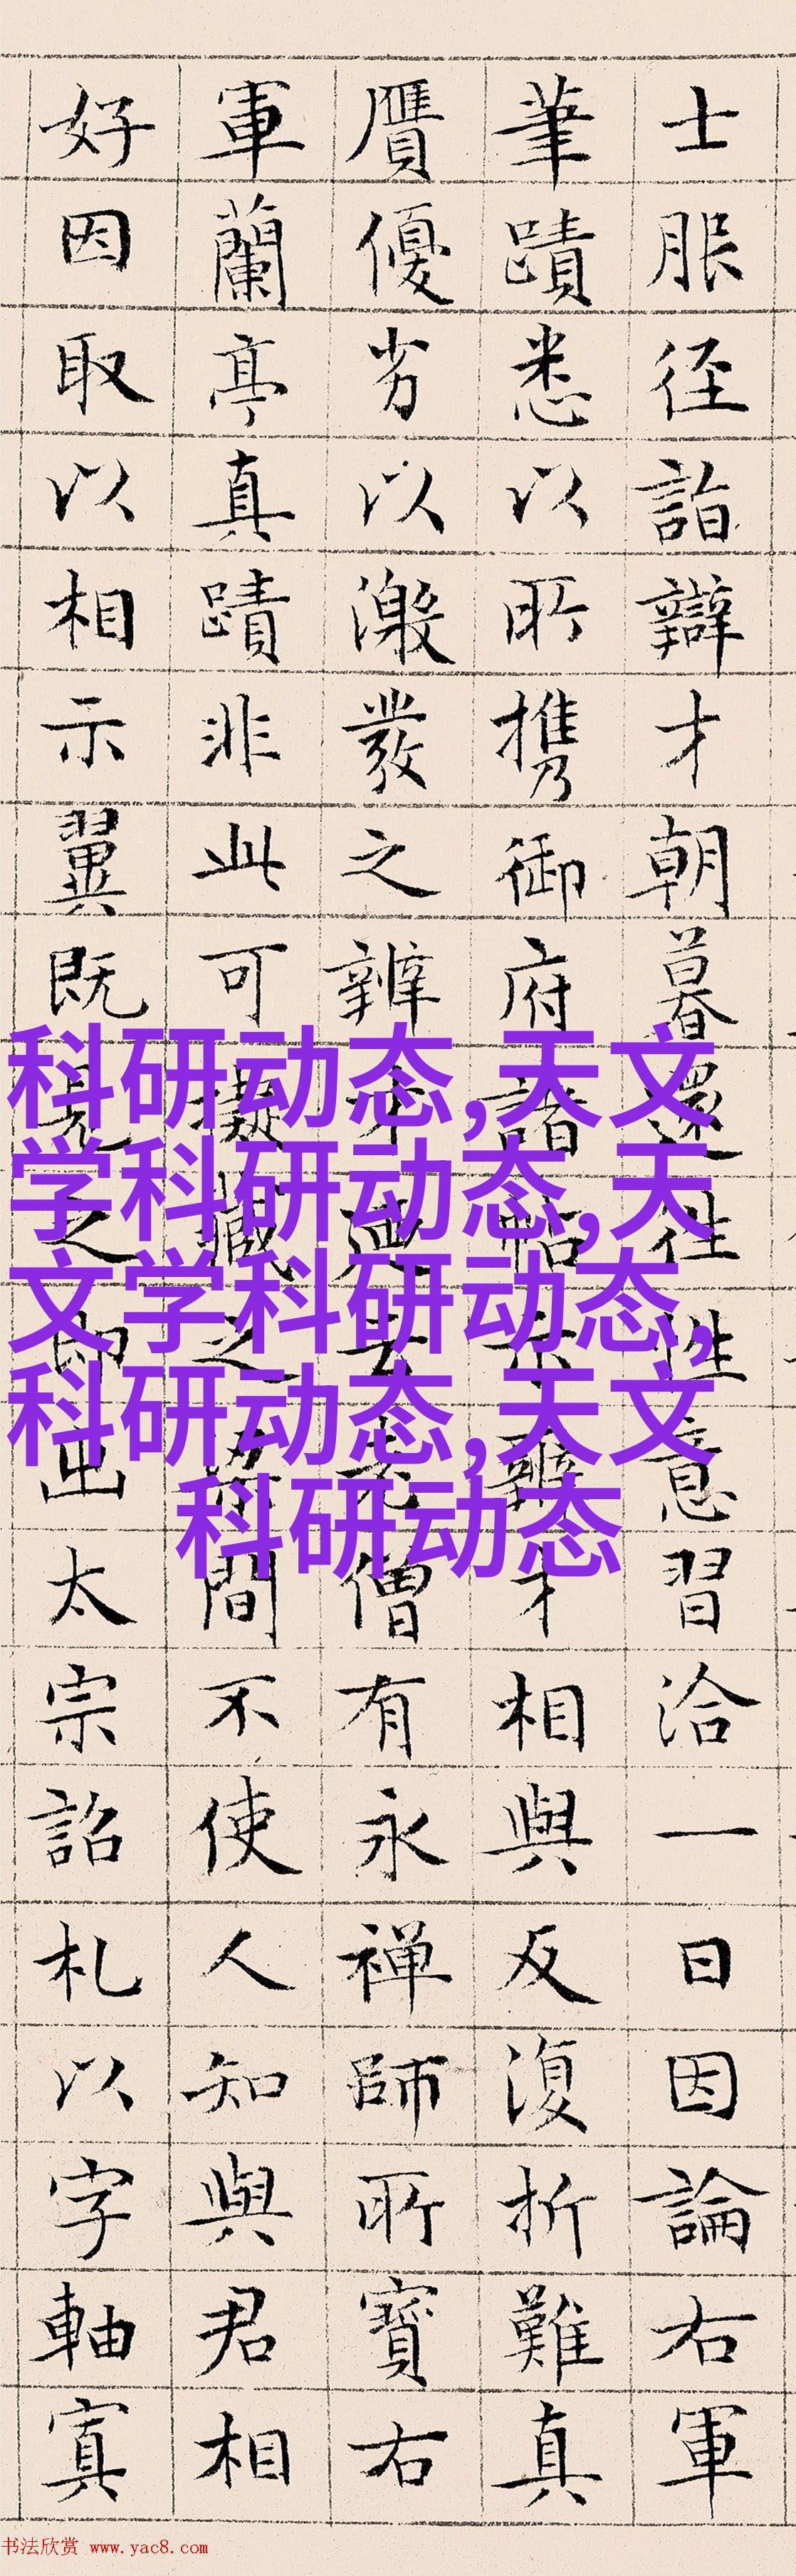 士服径詣辯才朝暮還往性意習洽一日因論右軍
筆蹟悉以所携御府諸帖示辨才相與反復折難真
贋優劣以激發之辨才無去老僧有永禅師所寶右
軍蘭亭真蹟非此可擬藏之梁間不使人知與君相
好因取以相示翼既見之即出太宗詔札以字軸寘
科研动态,天文
学科研动态,天
文学科研动态,
科研动态,天文
科研动态
书法欣赏 www.yac8.com